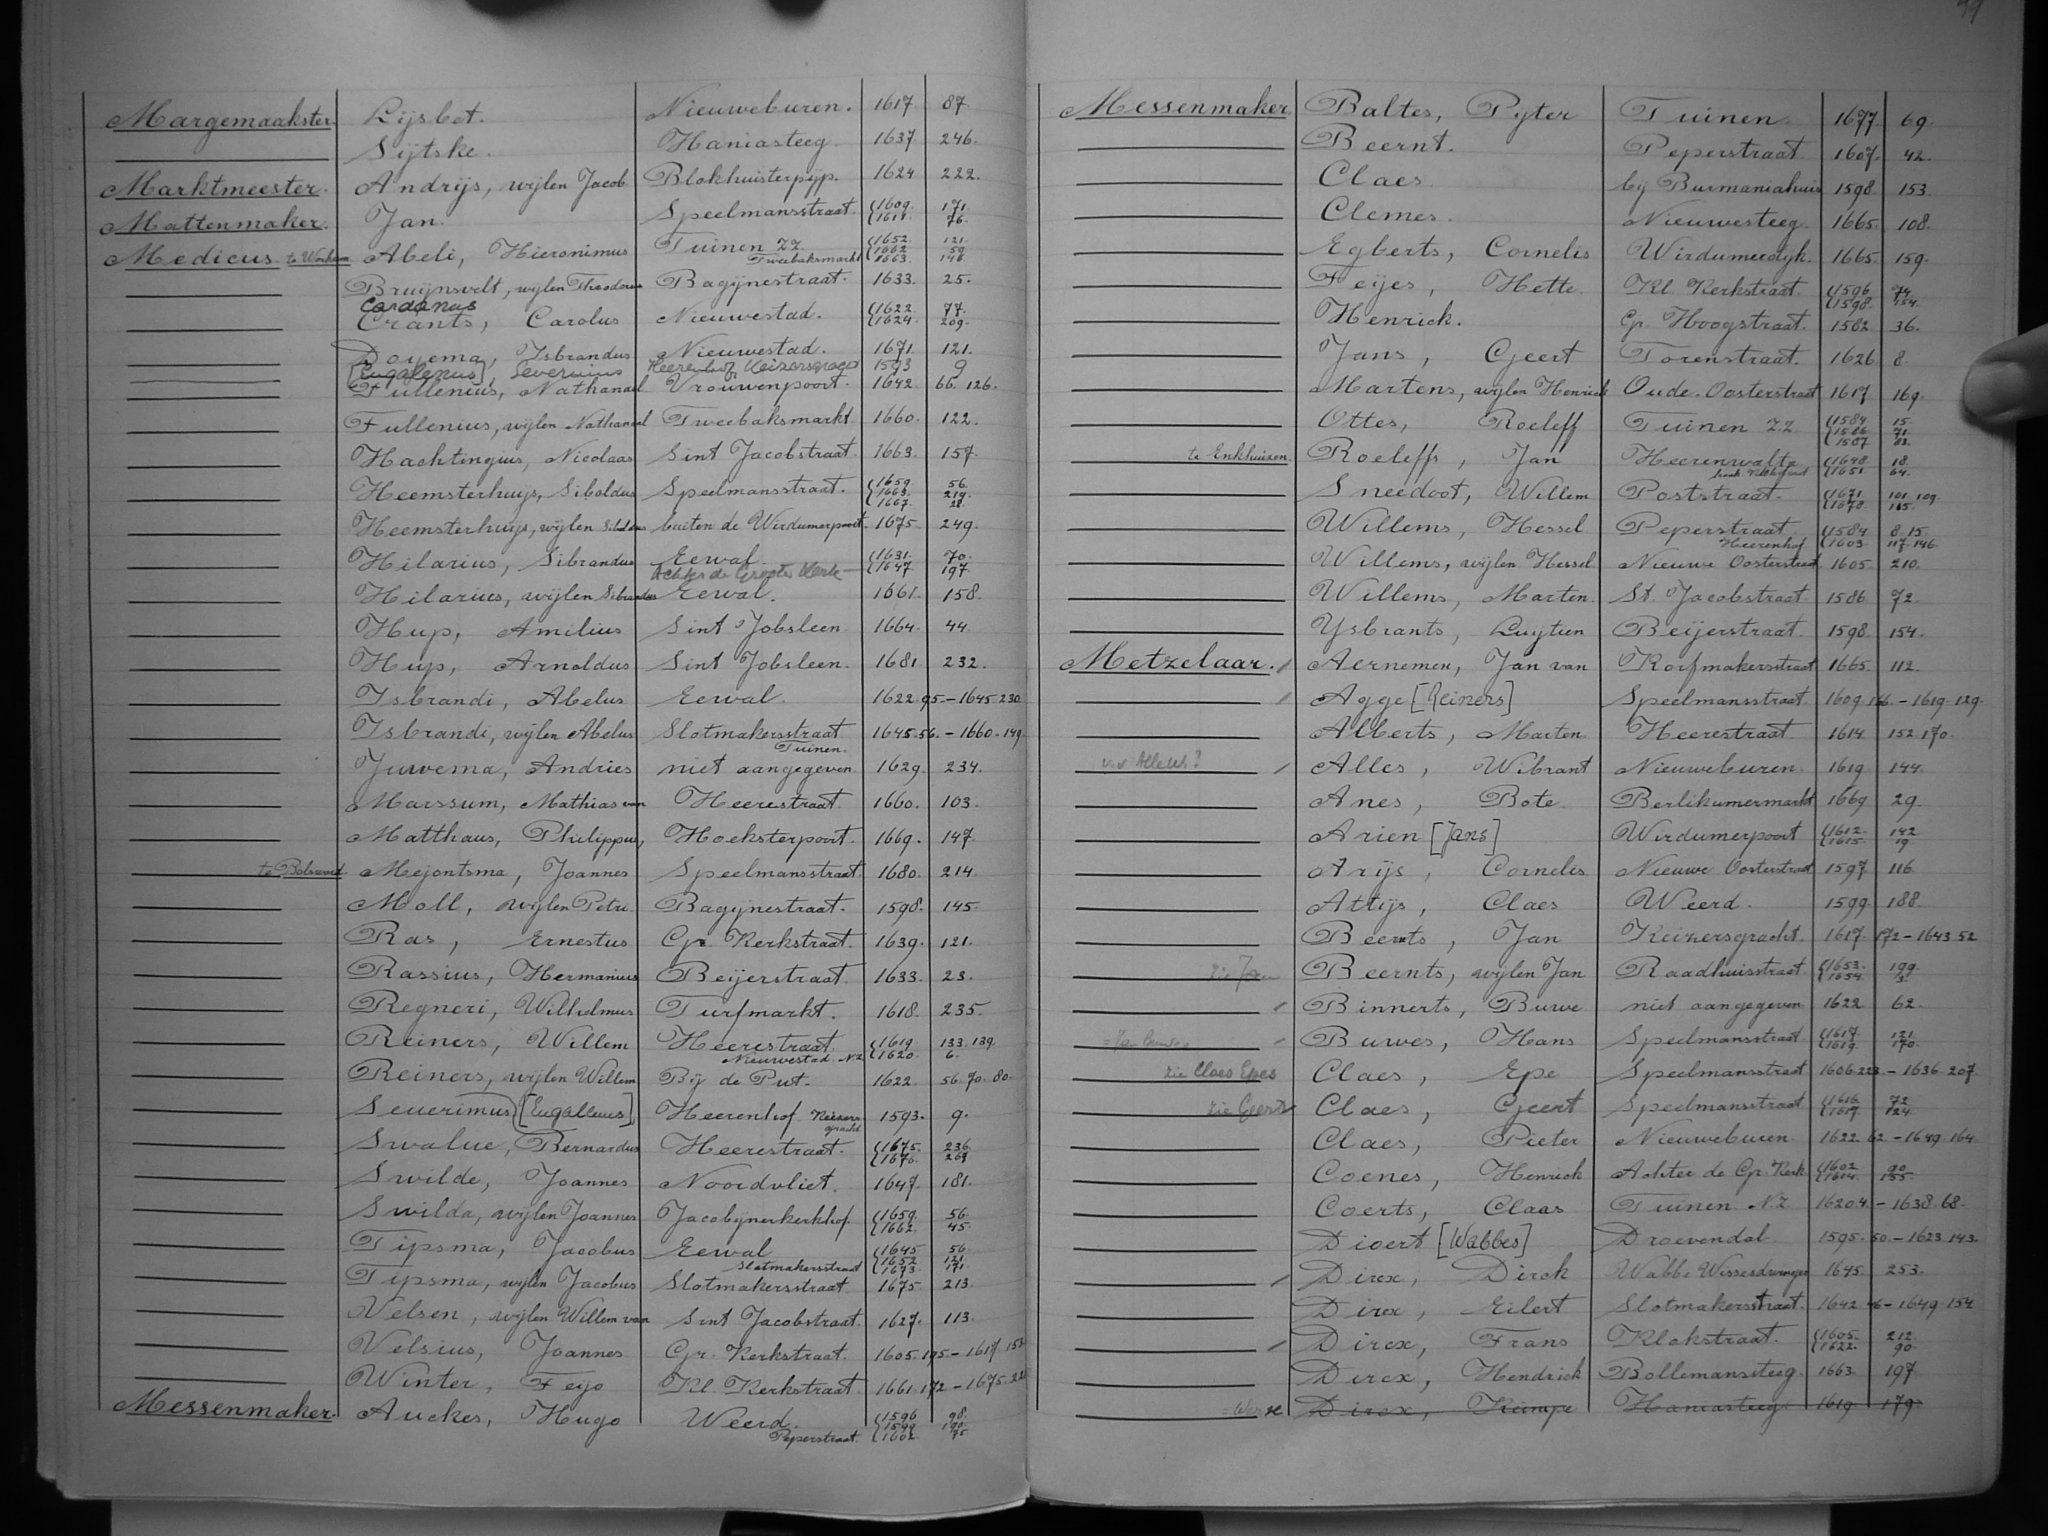 99
Margemaakster. Lijsbet. Nieuweburen. 1617 87.
Sijtske. Haniasteeg. 1637. 246.
Marktmeester. Andrijs, wijlen Jacob Blokhuisterpijp. 1624 222.
Mattenmaker. Jan Speelmansstraat. 1609. 171.
1611. 76.
Medicus te Workum Abeli, Hieronimus Tuinen ZZ. 1652. 121.
1662 59.
Tweebaksmarkt 1663. 146
Bruijnsvelt, wijlen Theodorus Bagijnestraat. 1633. 25.
Cardanus
Crants, Carolus Nieuwestad. 1622 77.
1624. 209.
Doyema, Isbrandus Nieuwestad. 1671. 121.
[Eugalenus], Severinus Heerenhof Keizersgracht 1593 9
Fullenius, Nathanael Vrouwenpoort. 1642 66. 126.
Fullenius, wijlen Nathanael Tweebaksmarkt 1660. 122.
Hachtingius, Nicolaas Sint Jacobstraat. 1663 157.
Heemsterhuys, Siboldus Speelmansstraat. 1659. 56.
1663. 219.
1667. 28.
Heemsterhuijs, wijlen Siboldus buiten de Wirdumerpoort. 1675 249.
Hilarius, Sibrandus Eewal. 1631. 70.
Achter de Groote Kerk 1647 197
Hilarius, wijlen Sibrandus Eewal. 1661. 158.
Hup, Amilius Sint Jobsleen 1664. 44.
Hup, Arnoldus Sint Jobsleen. 1681. 232.
Isbrandi, Abelus Eewal. 1622. 95. - 1645. 230.
Isbrandi, wijlen Abelus Slotmakersstraat 1645. 56. - 1660. 149.
Tuinen.
Juwema, Andries niet aangegeven 1629. 234.
Marssum, Mathias van Heerestraat. 1660. 103.
Matthaus, Philippus, Hoeksterpoort. 1669. 147.
te Bolsward. Mejontsma, Joannes Speelmansstraat. 1680. 214.
Moll, wijlen Petri Bagijnestraat. 1598. 145.
Ras, Ernestus Gr. Kerkstraat. 1639. 121.
Rassius, Hermanius Beijerstraat. 1633. 23.
Regneri, Wilhelmus Turfmarkt. 1618. 235.
Reiners, Willem Heerestraat. 1619. 133. 139.
Nieuwestad. NZ 1620. 6.
Reiners, wijlen Willem Bij de Put. 1622. 56. 70. 80.
Seuerimus [Eugallenus] Heerenhof Keizers 1593. 9.
gracht
Swalue, Bernardus Heerestraat. 1675. 236
1676. 269
Swilde, Joannes Noordvliet. 1647. 181.
Swilda, wijlen Joannes Jacobijnerkerkhof. 1659. 56.
1662. 45.
Tipsma, Jacobus Eewal 1645. 56.
1652 121.
Slotmakersstraat 1673. 171.
Tipsma, wijlen Jacobus Slotmakersstraat 1675. 213.
Velsen, wijlen Willem van Sint Jacobstraat. 1627. 113.
Velsius, Joannes Gr. Kerkstraat. 1605. 195. - 1617. 153
Winter, Feijo Kl. Kerkstraat. 1661. 172 - 1675.
Messenmaker. Auckes, Hugo Weerd. 1596 98.
1599 190.
Peperstraat. 1602. 75.
Messenmaker. Baltes, Pyter Tuinen. 1677. 69.
Beernt. Peperstraat. 1607. 42.
Claes bij Burmaniahuis 1598. 153.
Clemes. Nieuwesteeg. 1665. 108.
Egberts, Cornelis Wirdumerdyk. 1665. 159.
Feijes, Hette Kl. Kerkstraat. 1596. 74.
1598. 154.
Henrick. Gr. Hoogstraat. 1582. 36.
Jans, Geert Torenstraat. 1626 8.
Martens, wijlen Henrick Oude Oosterstraat 1617 169.
Ottes, Roeleff Tuinen Z.Z. 1584 15.
1586 71.
1587 82.
te Enkhuizen. Roeleffs, Jan Heerenwaltje 1648. 18.
1651. 64.
Sneedoot, Willem Poststraat. 1671. 101. 109.
1678. 165.
Willems, Hessel Peperstraat. 1584 8. 15.
Heerenhof 1603. 117. 146.
Willems, wijlen Hessel Nieuwe Oosterstraat 1605. 210.
Willems, Marten. St. Jacobstraat 1586 72.
Ysbrants, Luijtien Beijerstraat. 1598. 154.
Metzelaar. Aernemen, Jan van Korfmakersstraat 1665. 112.
Agge [Reiners] Speelmansstraat. 1609. 166. - 1619. 129.
Alberts, Marten Heerestraat 1614. 152. 170.
Alles, Wibrant Nieuweburen. 1619 144.
Anes, Bote Berlikumermarkt 1669 29.
Arien [Jans] Wirdumerpoort 1612. 142
1615. 19
Arijs, Cornelis Nieuwe Oosterstraat 1597 116
Attijs, Claes Weerd. 1599. 188.
Beernts, Jan Keizersgracht. 1617 172 - 1643. 52
zie Jan Beernts, wijlen Jan Raadhuisstraat 1653. 199.
1654. 3.
Binnerts, Buwe niet aangegeven 1622 62.
Buwes, Hans Speelmansstraat. 1617. 121.
1619. 170.
zie Claes Epes Claes, Epe Speelmansstraat 1606. 223 - 1636. 207.
zie Geert Claes, Geert Speelmansstraat 1616. 72
1617. 124.
Claes, Pieter Nieuweburen. 1622. 62. - 1649. 164.
Coenes, Henrick Achter de Gr. Kerk 1602 90
1614. 155.
Coerts, Claas Tuinen NZ 1620. 4 - 1638. 68.
Dioert [Wabbes] Droevendal. 1595. 50. - 1623. 143.
Dirox, Dirck Wabbe Wissesdwinger 1645. 253.
Dirox, Eilert Slotmakersstraat. 1642 - 1649. 154
Dirox, Frans Klokstraat. 1605. 212.
1622. 90
Dirox, Hendrick Bollemansteeg. 1663. 197
Dirox, Kempe Haniasteeg 1619. 179.